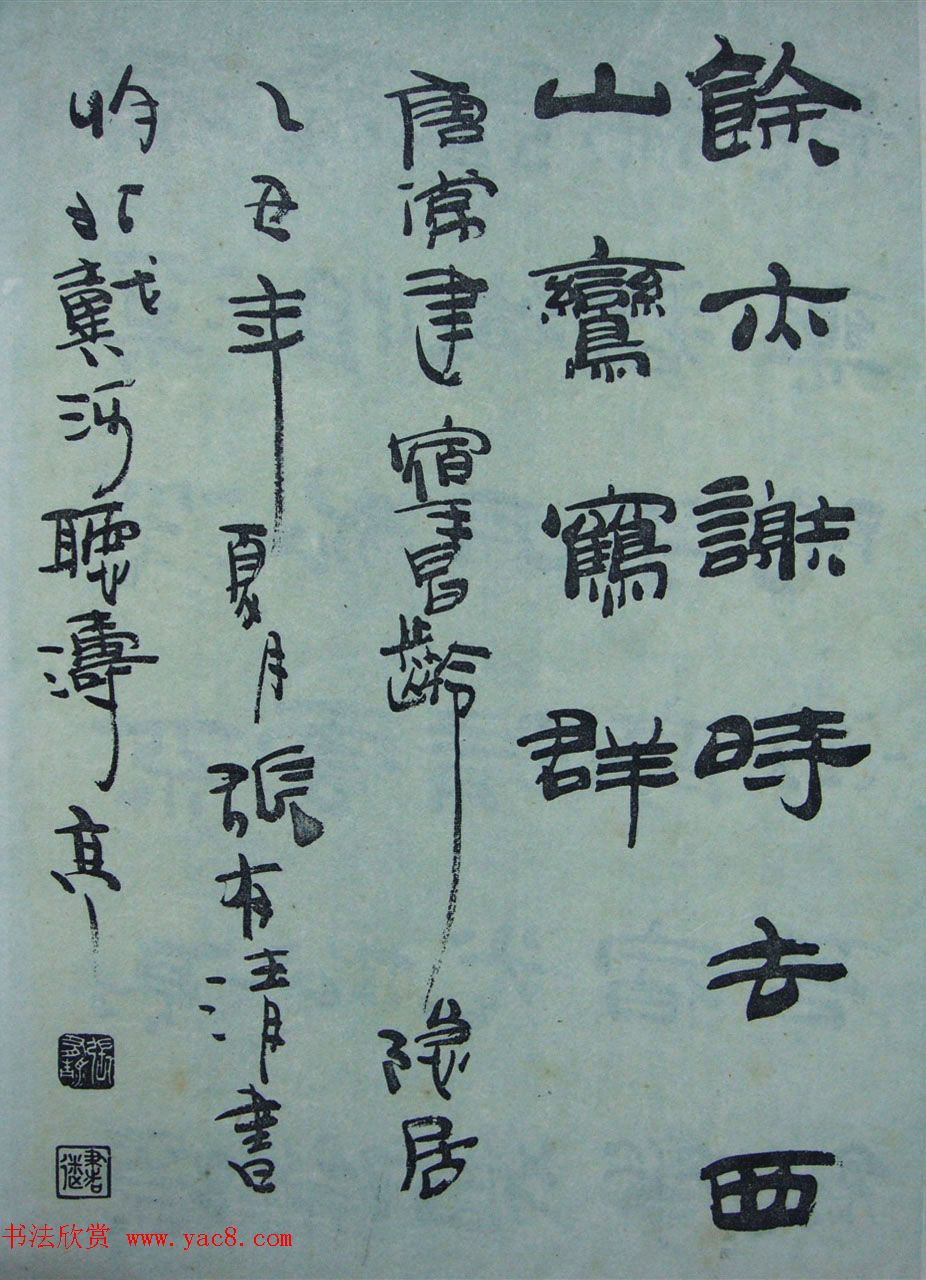 餘亦謝時去西
山鸞鶴群
唐常建宿王昌齡隱居
乙丑年夏月張有清書
北戴河聽濤亭
书法欣赏 www.yac8.com